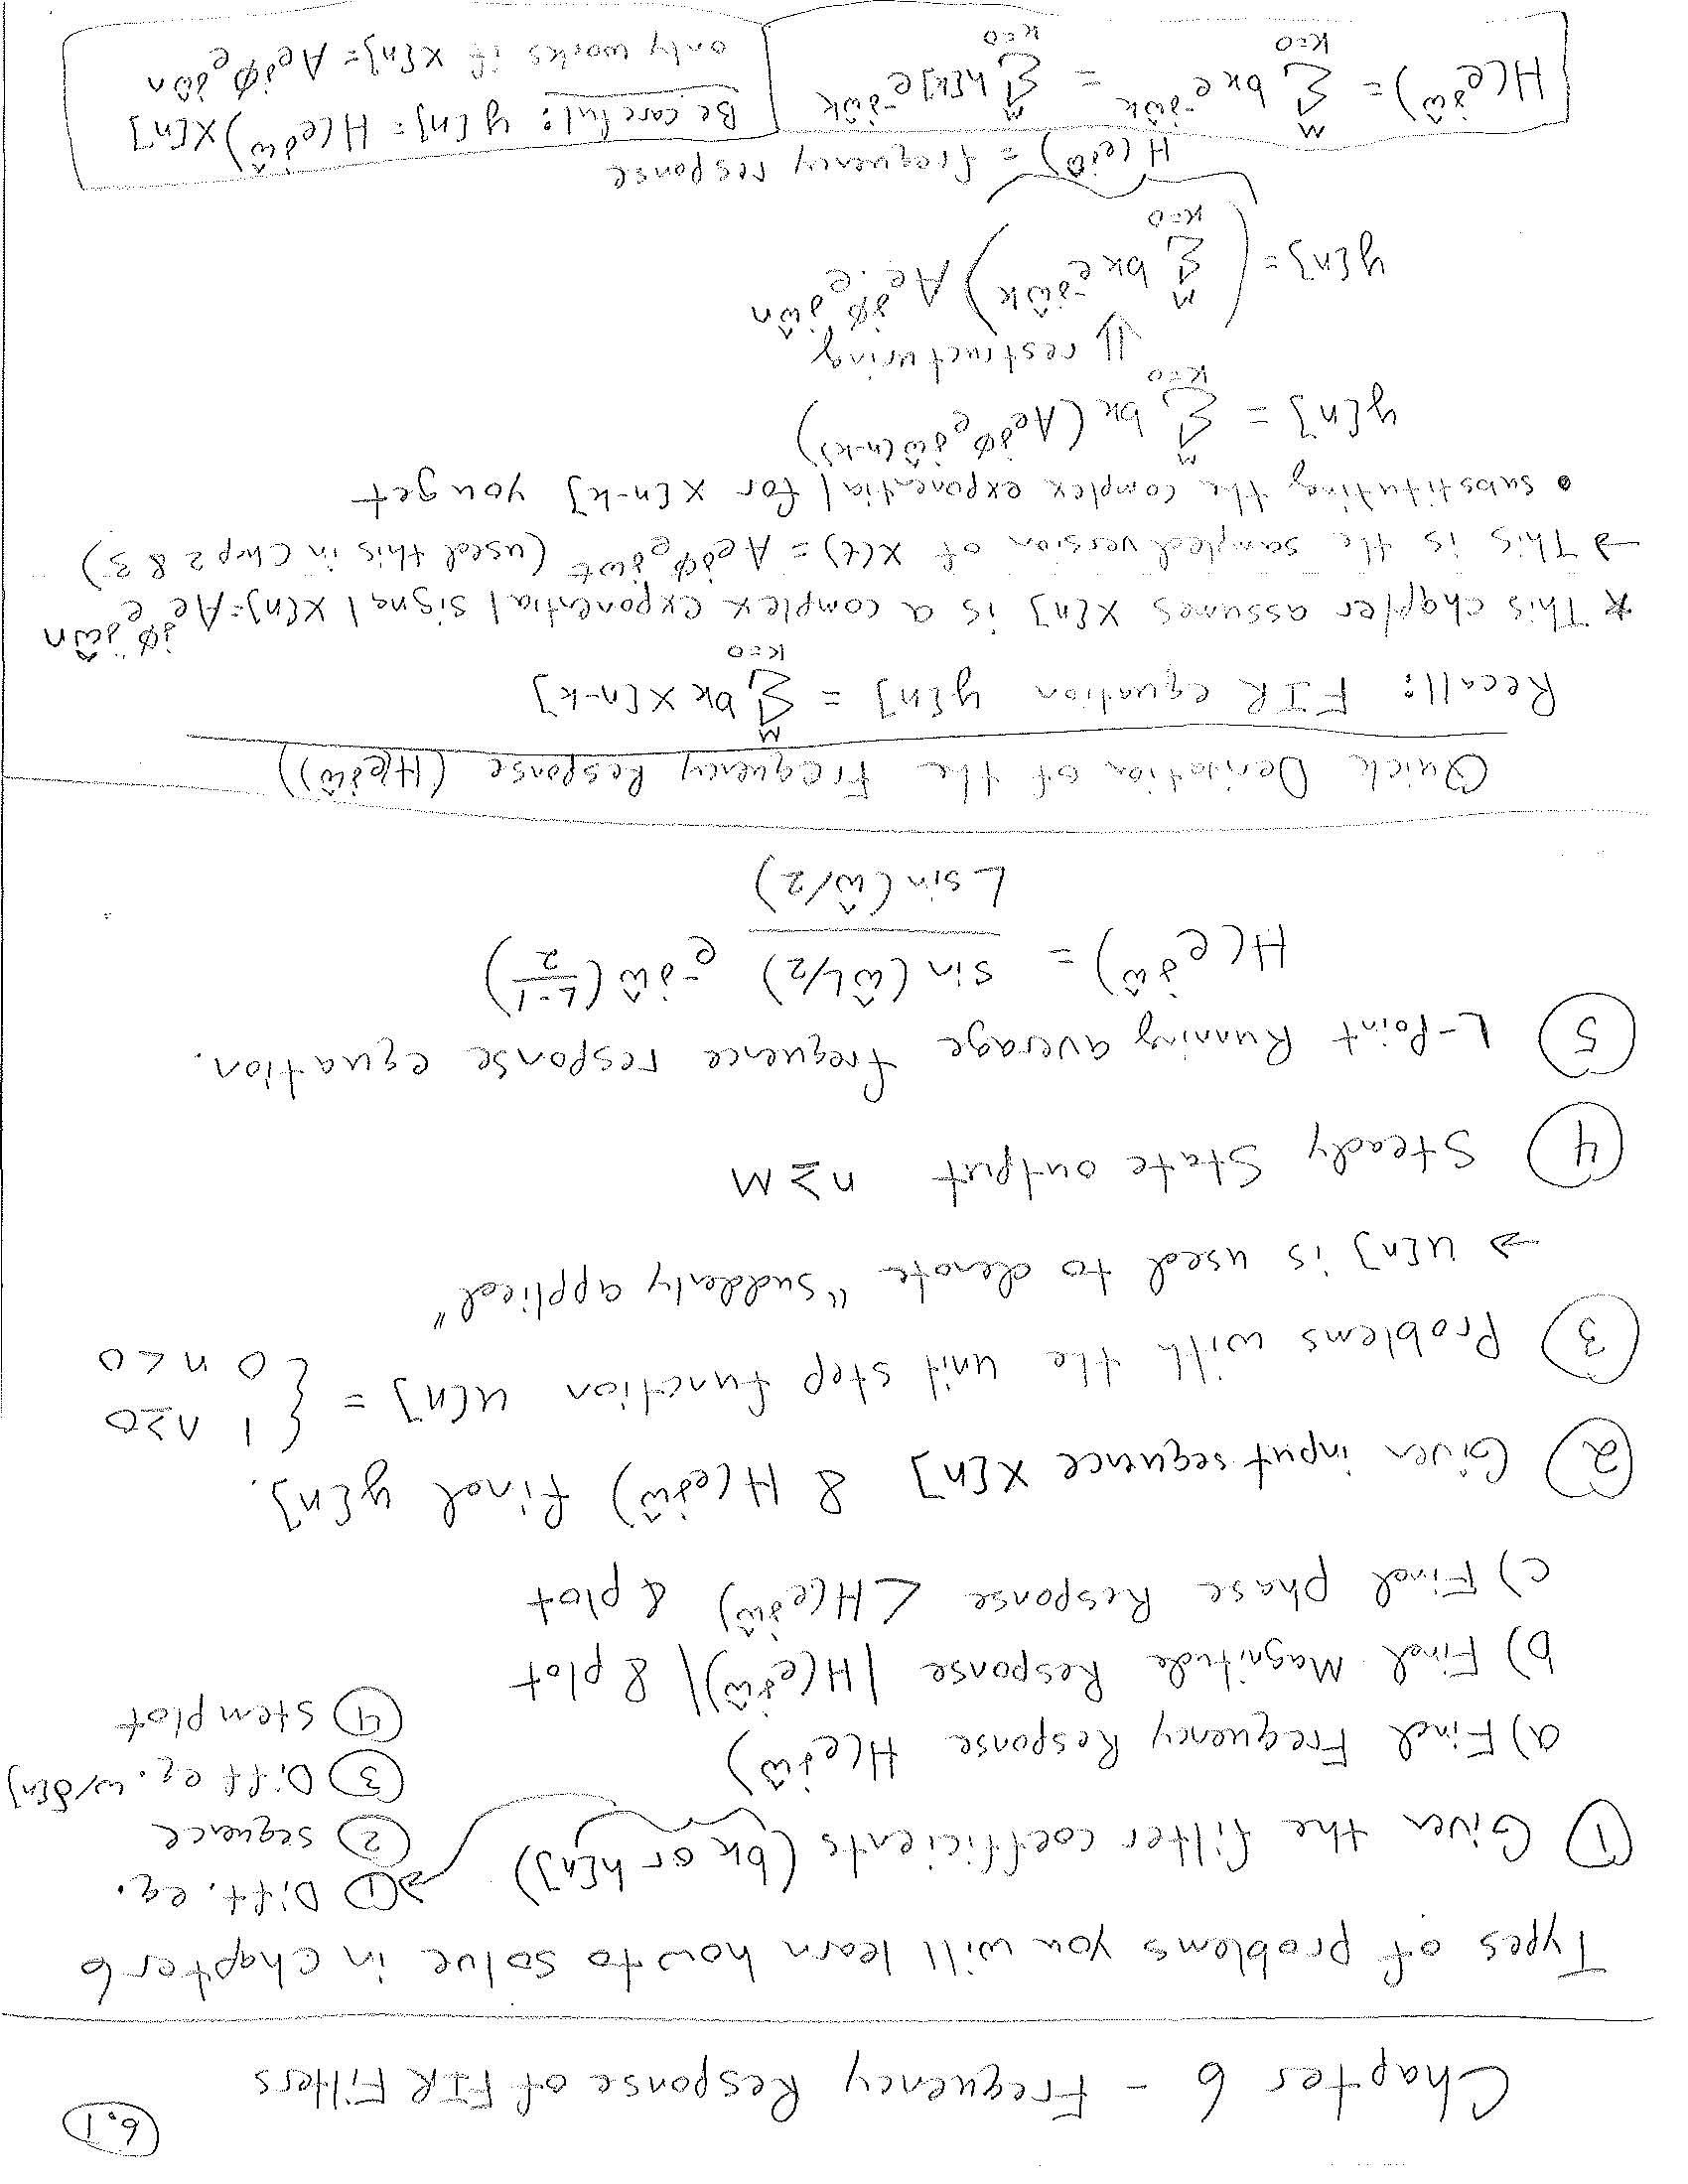 6.1
Chapter 6 - Frequency Response of FIR Filters
Types of problems you will learn how to solve in chapter 6
① Given the filter coefficients (bk or h[n]) → ① Diff. eq.
② sequence
③ Diff eq. w/δ[n]
④ stem plot
a) Find Frequency Response H(e^jω̂)
b) Find Magnitude Response |H(e^jω̂)| & plot
c) Find Phase Response ∠H(e^jω̂) & plot
② Given input sequence x[n] & H(e^jω̂) find y[n].
③ Problems with the unit step function u[n] = { 1 n≥0
{ 0 n<0
→ u[n] is used to denote "suddenly applied"
④ Steady State output n≥M
⑤ L-Point Running average frequence response equation.
H(e^jω̂) = sin(ω̂L/2) / L sin(ω̂/2) e^-jω̂((L-1)/2)
Quick Derivation of the Frequency Response (H(e^jω̂))
Recall: FIR equation y[n] = Σ_{k=0}^{M} bk x[n-k]
* This chapter assumes x[n] is a complex exponential signal x[n]=Ae^jφ e^jω̂n
→ This is the sampled version of x(t) = Ae^jφ e^jωt (used this in Chap 2 & 3)
• substituting the complex exponential for x[n-k] you get
y[n] = Σ_{k=0}^{M} bk (Ae^jφ e^jω̂(n-k))
⇓ restructuring
y[n] = ( Σ_{k=0}^{M} bk e^-jω̂k ) Ae^jφ · e^jω̂n
H(e^jω̂) = frequency response
H(e^jω̂) = Σ_{k=0}^{M} bk e^-jω̂k = Σ_{k=0}^{M} h[k] e^-jω̂k
Be careful: y[n] = H(e^jω̂) x[n]
only works if x[n] = Ae^jφ e^jω̂n